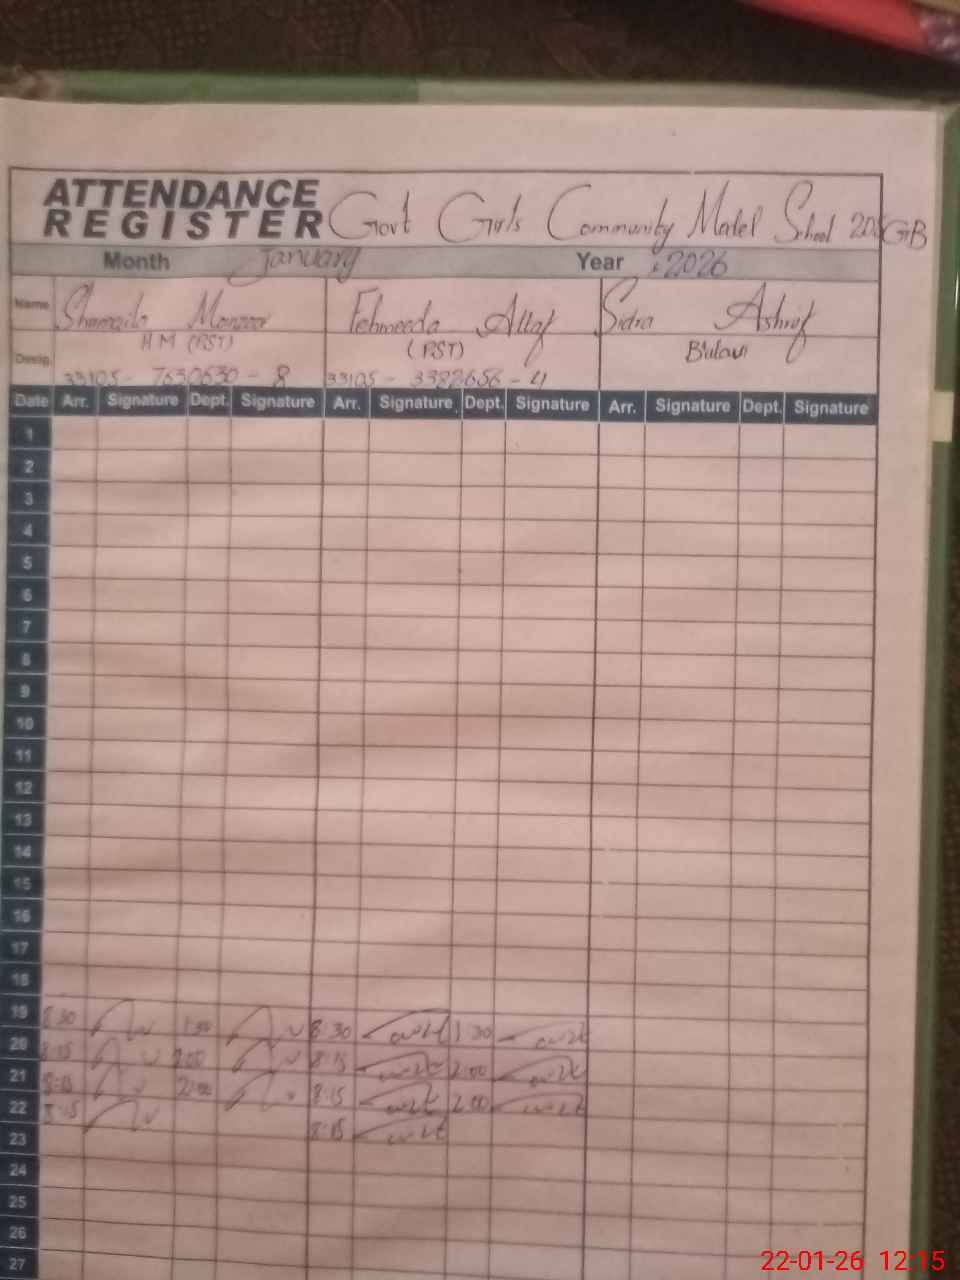 ATTENDANCE
REGISTER Govt Girls Community Model School GB
Month January Year 2026
Name Shamaila Manzoor Fehmeeda Altaf Sidra Ashraf
Desig. H M (PST) (PST)
33105 - 7630630 - 8 33105 - 3382656 - 4
Date Arr. Signature Dept. Signature Arr. Signature Dept. Signature Arr. Signature Dept. Signature
1
2
3
4
5
6
7
8
9
10
11
12
13
14
15
16
17
18
19 8:30 1:30 8:30 1:30
20 8:15 2:00 8:15 2:00
21 8:15 2:00 8:15 2:00
22 8:15 8:15
23
24
25
26
27
22-01-26 12:15